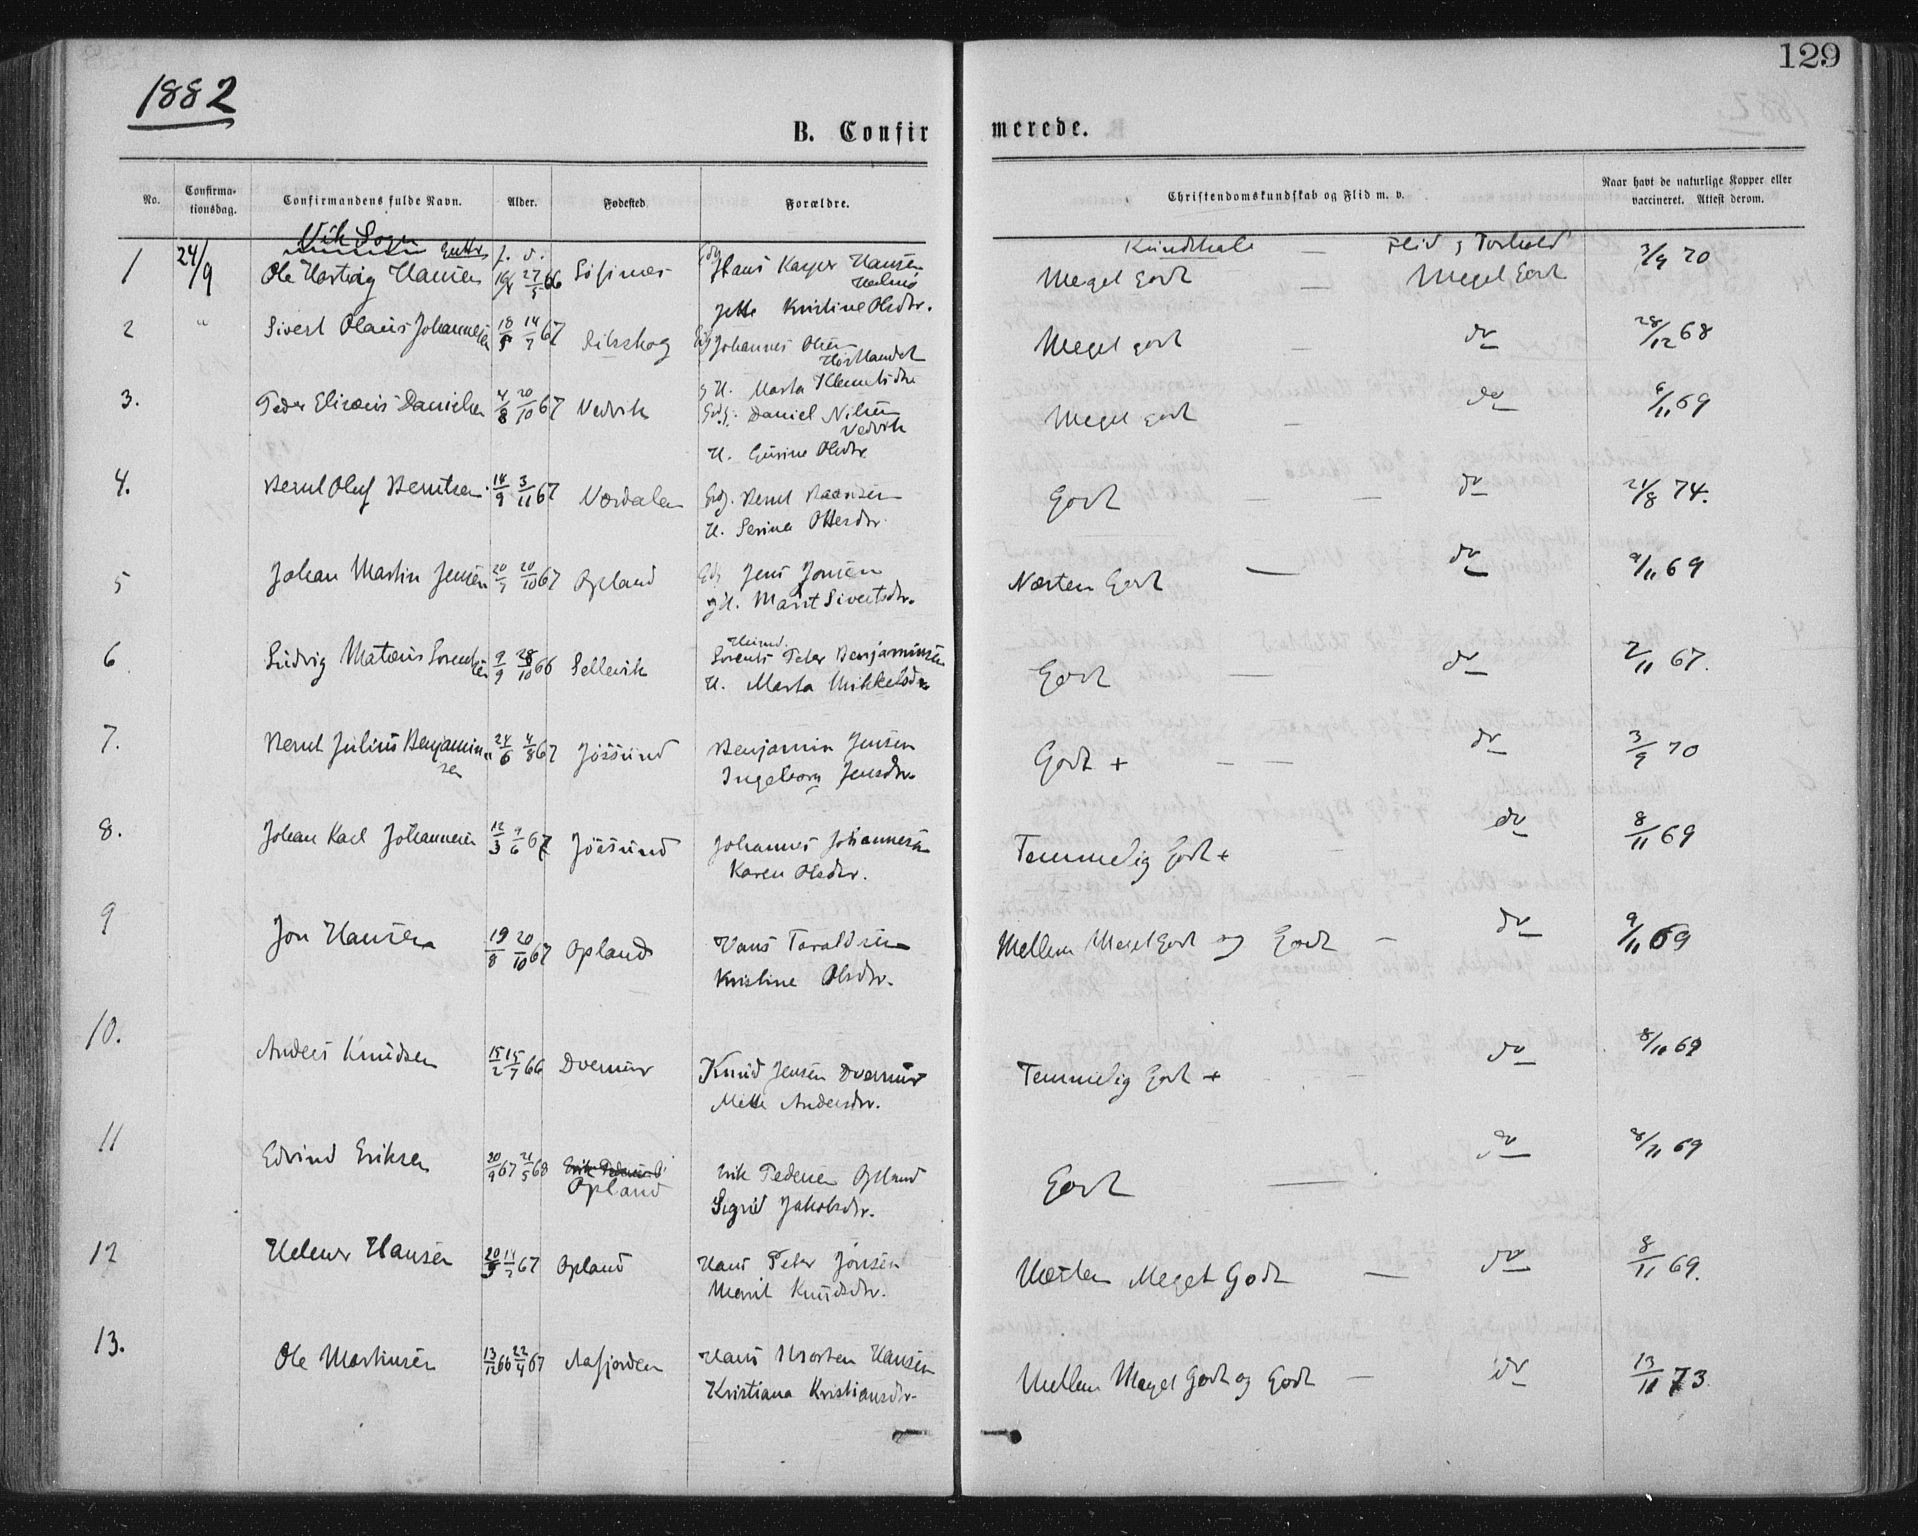 129
1882
B. Confirmerede.
No. Confirmationsdag. Confirmandens fulde Navn. Alder. Fødested Forældre. Christendomskundskab og Flid m. v. Naar havt de naturlige Kopper eller vaccineret. Attest derom.
Vik Sogn Gutter f. d. Kundskab — Flid og Forhold
1 24/9 Ole Hartvig Hansen 27/5 66 Hans Kasper Hansen Meget Godt — Meget Godt 3/9 70
Jette Kristine Olsdtr.
2 " Sivert Olaus Johannesen 18/5 14/7 67 Johannes Olsen Meget godt — do 28/12 68
Marta Klemetsdtr
3. Peder Elizæus Danielsen 4/8 20/10 67 Vedvik Gdbr. Daniel Nilsen Vedvik Meget godt — do 6/11 69
H. Gurine Olsdtr
4. Bernt Oluf Berntsen 14/9 3/11 67 Nærdalen Gdbr. Bernt Godt — — do 21/8 74.
H. Serina Ottersdtr.
5 Johan Martin Jensen 20/7 20/10 67 Opland Jens Jonsen Næsten Godt — do 9/11 69
H. Marit Sivertsdtr.
6 Ludvig Matæus Sorentsen 9/9 28/10 66 Sellevik Sorents Peter Benjaminsen Godt — do 2/11 67.
H. Marta Mikkelsdtr
7. Bernt Julius Benjaminsen 24/6 4/8 67 Jössund Benjamin Jensen Godt + — — do 3/9 70
Ingeborg Jensdtr
8. Johan Karl Johannesen 12/3 9/6 67 Jössund Johannes Johannesen Temmelig Godt + do 8/11 69
Karen Olsdtr.
9 Jon Hansen 19/8 20/10 67 Opland Hans Taraldsen Mellem Meget Godt og Godt — do 9/11 69
Kristine Olsdtr.
10. Anders Knudsen 15/2 15/7 66 Dvernus Knud Jensen Dvernus Temmelig Godt + — do 8/11 69
Mette Andersdtr.
11 Edvind Eriksen 20/9 67 21/5 68 Opland Erik Pedersen Opland Godt — do 8/11 69
Sigrid Jakobsdtr.
12 Helmer Hansen 67 Opland Hans Peter Jonsen Næsten Meget Godt — do 8/11 69.
Marit Knudsdtr.
13. Ole Martinsen 13/12 66 22/4 67 Aafjorden Hans Morten Hansen Mellem Meget Godt og Godt — do 13/11 73
Kristiana Kristiansdtr.